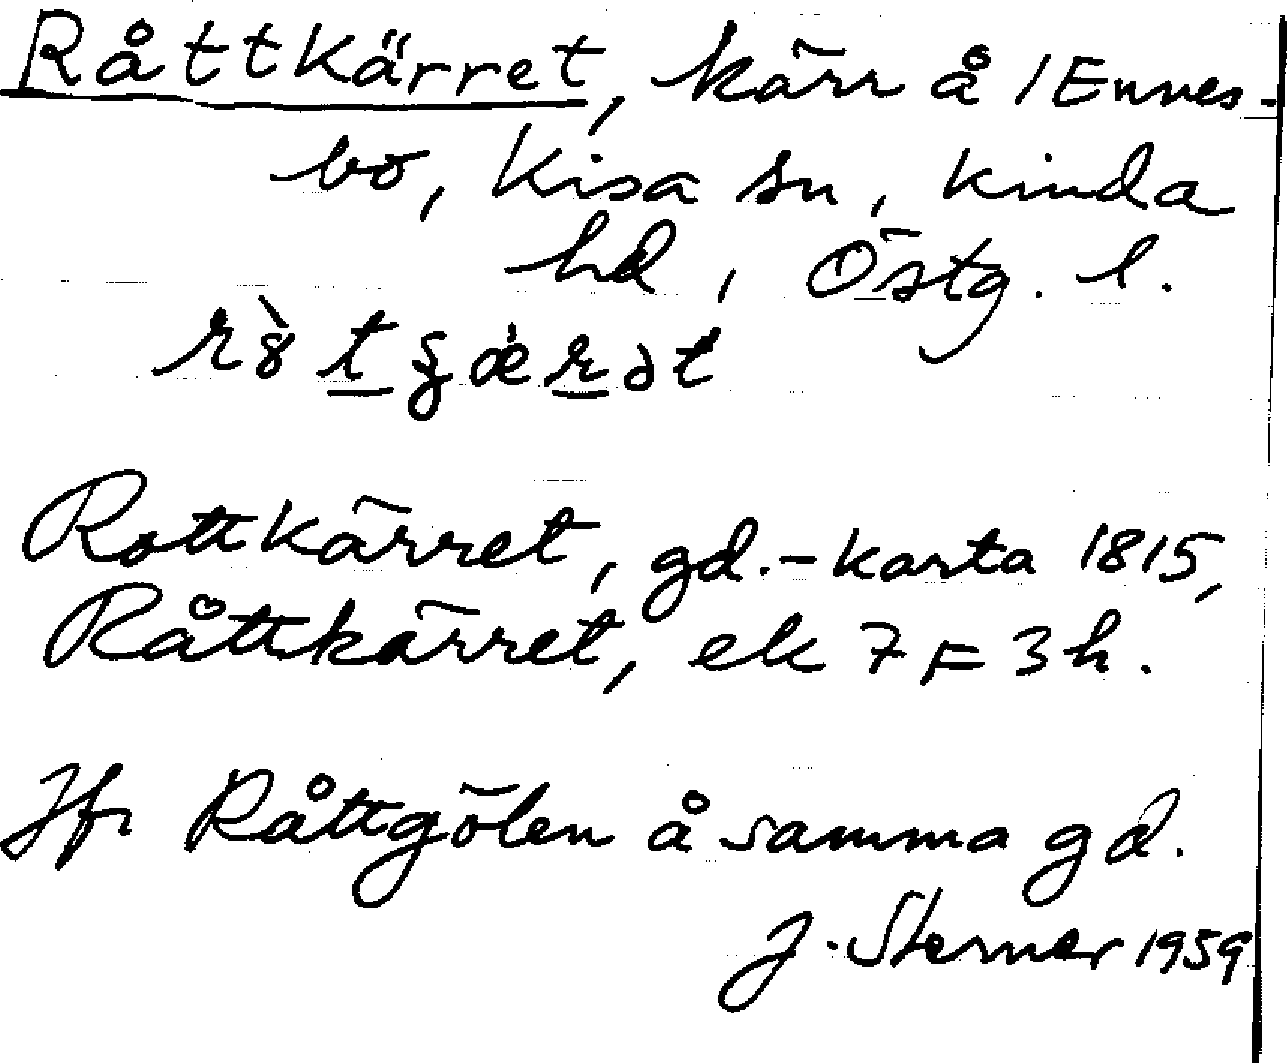 Råttkärret, kärr å 1 Ennes-
bo, Kisa sn, Kinda
hd, Östg. l.
Rottkärret, gd.-karta 1815,
Råttkärret, ek 7F3h.
Jfr Råttgölen å samma gd.
J. Sterner 1959